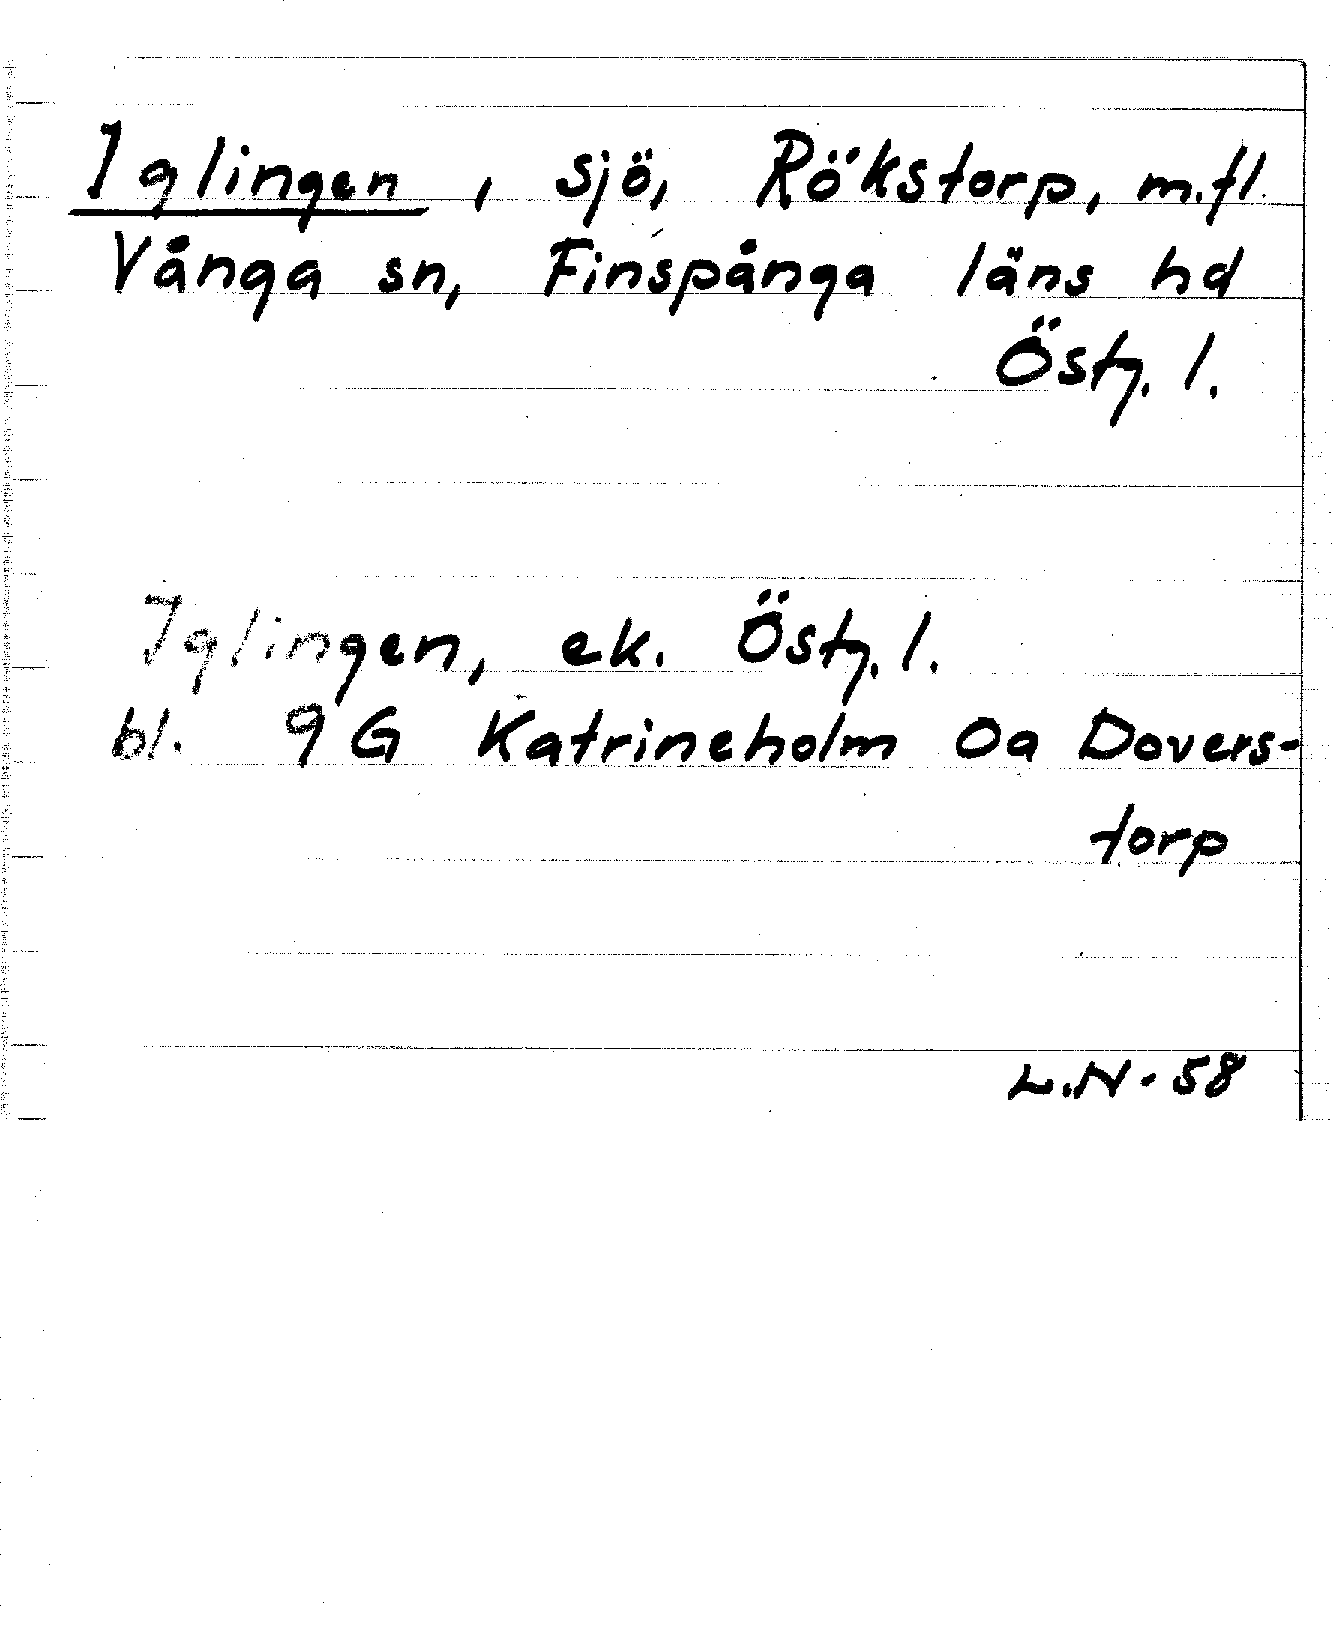 Iglingen, sjö, Rökstorp, m.fl.
Vånga sn, Finspånga läns hd
Östg. l.
Iglingen, ek. Östg. l.
bl. 9G Katrineholm 0a Dovers-
torp
L.N-58